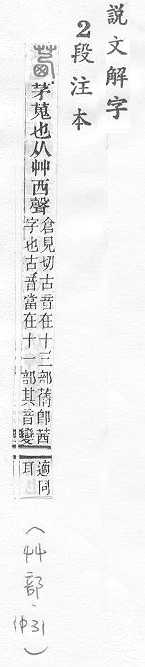 說文解字
2段注本
茜
茅蒐也从艸西聲
倉見切古音在十三部蒨卽茜
字也古音當在十一部其音變
適同
耳
(艸部. 31)